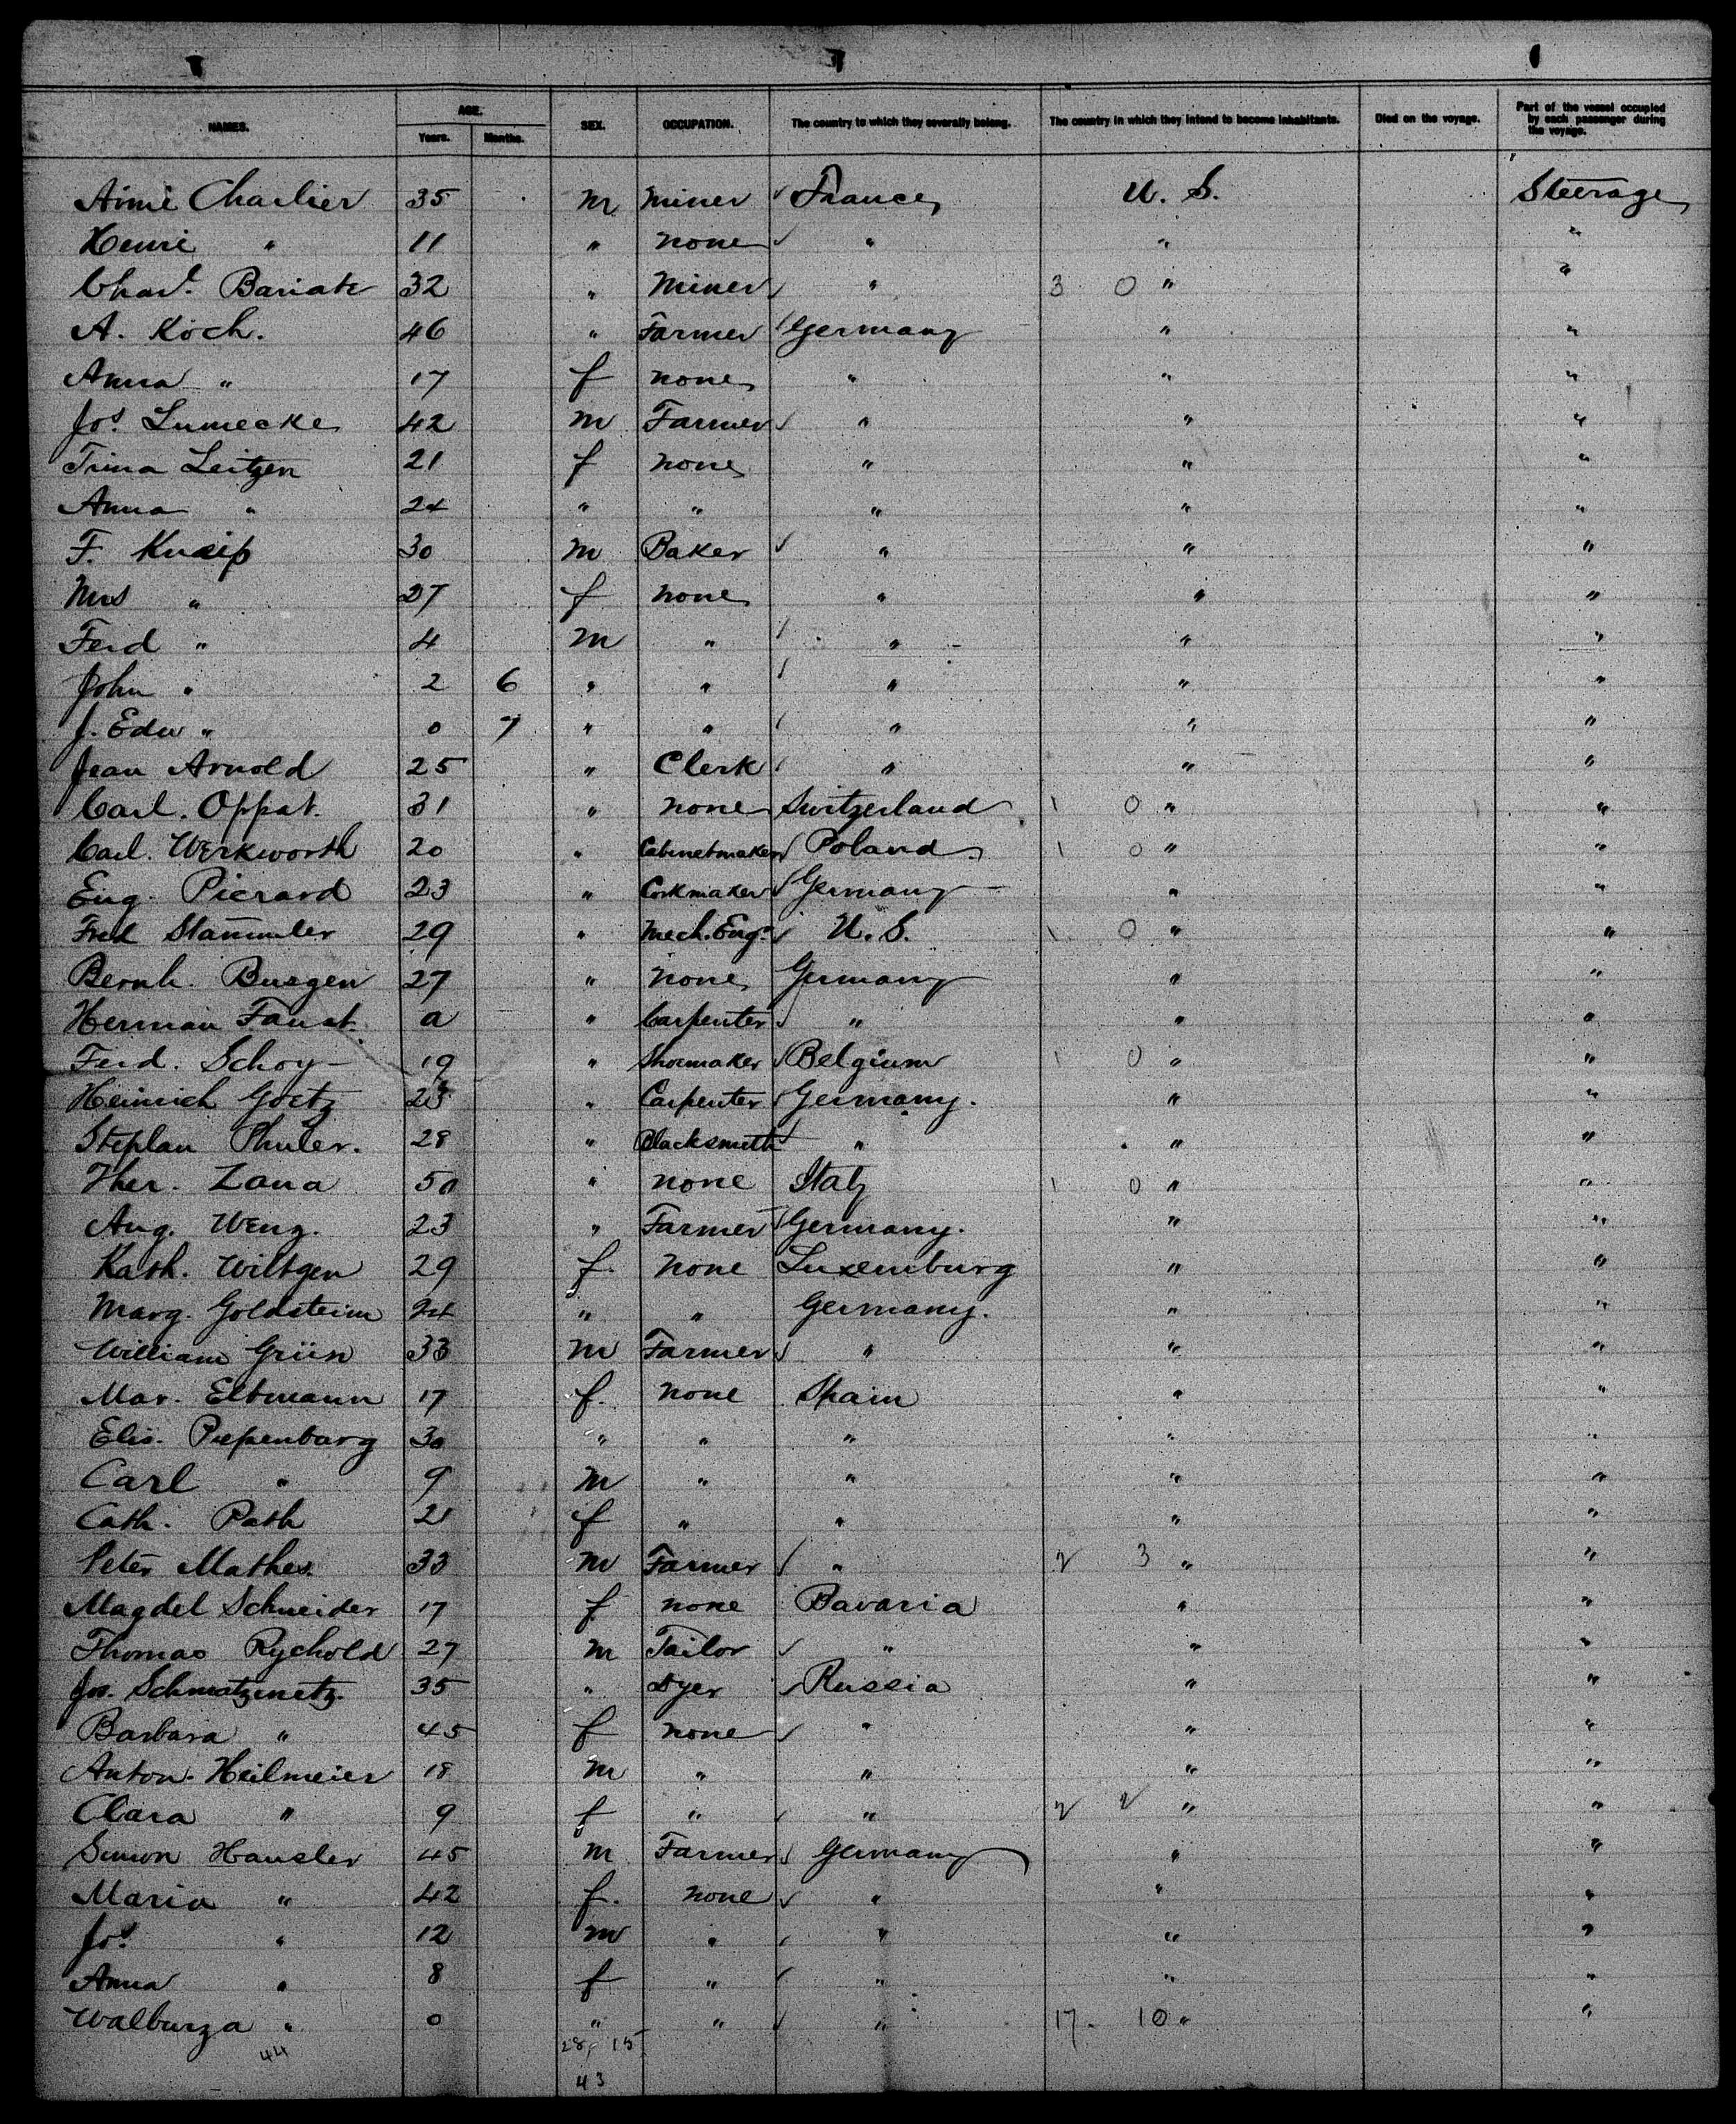 NAMES. AGE. Years. Months. SEX. OCCUPATION. The country to which they severally belong. The country in which they intend to become inhabitants. Died on the voyage. Part of the vessel occupied by each passenger during the voyage.
Aimé Charlier 35 m miner France U. S. Steerage
Henri " 11 " none " " "
Chas. Bariate 32 " Miner " 3 0 " "
A. Koch. 46 " Farmer Germany " "
Anna " 17 f none " " "
Jos. Lumecke 42 m Farmer " " "
Trina Leitzen 21 f none " " "
Anna " 24 " " " " "
F. Knaip 30 m Baker " " "
Mrs " 27 f none " " "
Ferd " 4 m " " " "
John " 2 6 " " " " "
J. Edw " 0 7 " " " " "
Jean Arnold 25 " Clerk " " "
Carl. Oppat. 31 " none Switzerland 1 0 " "
Carl. Werkworth 20 " Cabinetmaker Poland 1 0 " "
Eug. Pierard 23 " Corkmaker Germany " "
Fred Stammler 29 " Mech. Engr U. S. 1 0 " "
Bernh. Busgen 27 " none Germany " "
Herman Faust. a " Carpenter " " "
Ferd. Schoy 19 " Shoemaker Belgium 1 0 " "
Heinrich Goetz 23 " Carpenter Germany. " "
Stephan Thuler. 28 " Blacksmith " " "
Ther. Zana 50 " none Italy 1 0 " "
Aug. Wenz. 23 " Farmer Germany. " "
Kath. Wiltgen 29 f. none Luxemburg " "
Marg. Goldsteim 24 " " Germany. " "
William Grün 33 m Farmer " " "
Mar. Eltmann 17 f. none Spain " "
Elis. Piepenbarg 30 " " " " "
Carl " 9 m " " " "
Cath. Path 21 f " " " "
Peter Mathes. 33 m Farmer " 2 3 " "
Magdel Schneider 17 f none Bavaria " "
Thomas Rychold 27 m Tailor " " "
Jos. Schmatzmetz. 35 " Dyer Russia " "
Barbara " 45 f none " " "
Anton. Heilmeier 18 m " " " "
Clara " 9 f " " 2 2 " "
Simon Hausler 45 m Farmer Germany " "
Maria " 42 f. none " " "
Jos. " 12 m " " " "
Anna " 8 f " " " "
Walburga " 0 " " " 17. 10 " "
44 28, 15
43